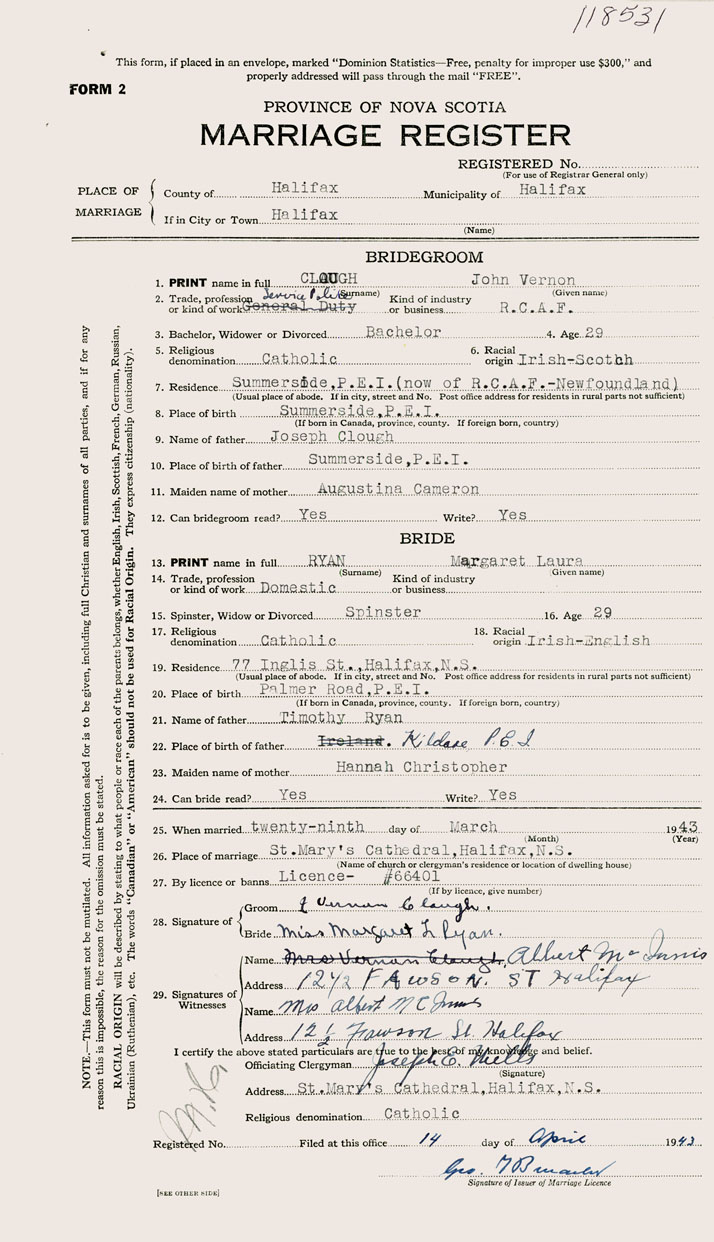 118531
This form, if placed in an envelope, marked "Dominion Statistics—Free, penalty for improper use $300," and
properly addressed will pass through the mail "FREE".
FORM 2
PROVINCE OF NOVA SCOTIA
MARRIAGE REGISTER
REGISTERED No.
(For use of Registrar General only)
PLACE OF MARRIAGE
County of Halifax Municipality of Halifax
If in City or Town Halifax
(Name)
BRIDEGROOM
1. PRINT name in full CLOUGH John Vernon
(Surname) (Given name)
2. Trade, profession or kind of work General Duty Service Police Kind of industry or business R.C.A.F.
3. Bachelor, Widower or Divorced Bachelor 4. Age 29
5. Religious denomination Catholic 6. Racial origin Irish-Scotch
7. Residence Summerside,P.E.I.(now of R.C.A.F.-Newfoundland)
(Usual place of abode. If in city, street and No. Post office address for residents in rural parts not sufficient)
8. Place of birth Summerside,P.E.I.
(If born in Canada, province, county. If foreign born, country)
9. Name of father Joseph Clough
10. Place of birth of father Summerside,P.E.I.
11. Maiden name of mother Augustina Cameron
12. Can bridegroom read? Yes Write? Yes
BRIDE
13. PRINT name in full RYAN Margaret Laura
(Surname) (Given name)
14. Trade, profession or kind of work Domestic Kind of industry or business
15. Spinster, Widow or Divorced Spinster 16. Age 29
17. Religious denomination Catholic 18. Racial origin Irish-English
19. Residence 77 Inglis St.,Halifax,N.S.
(Usual place of abode. If in city, street and No. Post office address for residents in rural parts not sufficient)
20. Place of birth Palmer Road,P.E.I.
(If born in Canada, province, county. If foreign born, country)
21. Name of father Timothy Ryan
22. Place of birth of father Ireland. Kildare P.E.I
23. Maiden name of mother Hannah Christopher
24. Can bride read? Yes Write? Yes
25. When married twenty-ninth day of March 1943
(Month) (Year)
26. Place of marriage St.Mary's Cathedral,Halifax,N.S.
(Name of church or clergyman's residence or location of dwelling house)
27. By licence or banns Licence- #66401
(If by licence, give number)
28. Signature of
Groom J Vernon Clough.
Bride Miss Margaret L Ryan.
29. Signatures of Witnesses
Name Mrs Vernon Clough, Albert McInnis
Address 12 1/2 FAWSON. ST Halifax
Name Mrs Albert McInnis
Address 12 1/2 Fawson St. Halifax
I certify the above stated particulars are true to the best of my knowledge and belief.
Officiating Clergyman Joseph E. Mills
(Signature)
Address St.Mary's Cathedral,Halifax,N.S.
Religious denomination Catholic
Registered No. Filed at this office 14 day of April 1943
Geo.
Signature of Issuer of Marriage Licence
[SEE OTHER SIDE]
NOTE.—This form must not be mutilated. All information asked for is to be given, including full Christian and surnames of all parties, and if for any
reason this is impossible, the reason for the omission must be stated.
RACIAL ORIGIN will be described by stating to what people or race each of the parents belongs, whether English, Irish, Scottish, French, German, Russian,
Ukrainian (Ruthenian), etc. The words "Canadian" or "American" should not be used for Racial Origin. They express citizenship (nationality).